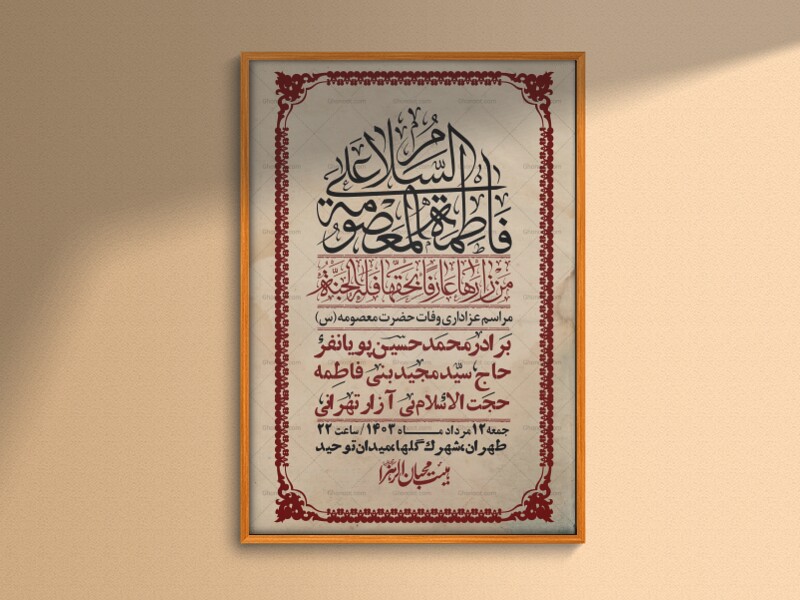 السَّلامُ عَلی
فاطِمَةَ المَعصومَة
مَن زارَها عارِفًا بِحَقِّها فَلَهُ الجَنَّة
مراسم عزاداری وفات حضرت معصومه (س)
برادر محمدحسین پویانفر
حاج سیّد مجید بنی فاطمه
حجت الاسلام بی آزار تهرانی
جمعه ۱۲ مرداد ماه ۱۴۰۳ / ساعت ۲۲
طهران، شهرک گلها، میدان توحید
هیئت محبان الزهرا